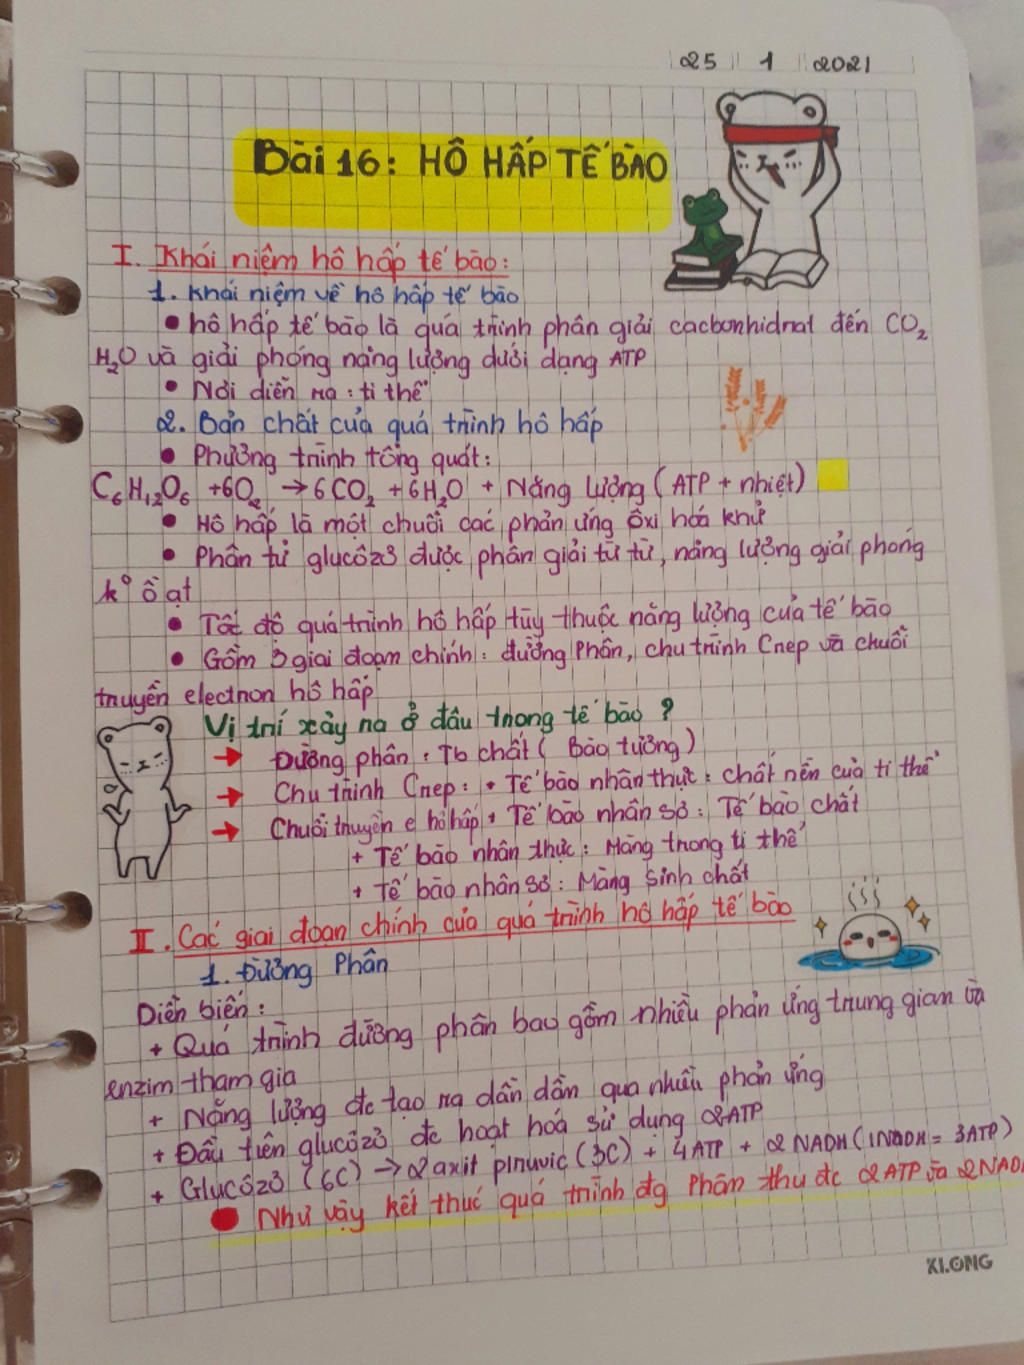 25 1 2021
Bài 16: HÔ HẤP TẾ BÀO
I. Khái niệm hô hấp tế bào:
1. Khái niệm về hô hấp tế bào
• hô hấp tế bào là quá trình phân giải cacbonhidrat đến CO₂
H₂O và giải phóng năng lượng dưới dạng ATP
• Nơi diễn ra: ti thể
2. Bản chất của quá trình hô hấp
• Phương trình tổng quát:
C₆H₁₂O₆ +6O₂ → 6CO₂ + 6H₂O + Năng lượng (ATP + nhiệt)
• Hô hấp là một chuỗi các phản ứng ôxi hoá khử
• Phân tử glucôzơ được phân giải từ từ, năng lượng giải phóng
k° ồ ạt
• Tốc độ quá trình hô hấp tùy thuộc năng lượng của tế bào
• Gồm 3 giai đoạn chính: đường Phân, chu trình Crep và chuỗi
truyền electron hô hấp
Vị trí xảy ra ở đâu trong tế bào ?
→ Đường phân: Tb chất ( Bào tương )
→ Chu trình Crep: + Tế bào nhân thực: chất nền của ti thể
→ Chuỗi truyền e hô hấp + Tế bào nhân sơ: Tế bào chất
+ Tế bào nhân thực: Màng trong ti thể
+ Tế bào nhân sơ: Màng sinh chất
II. Các giai đoạn chính của quá trình hô hấp tế bào
1. Đường Phân
Diễn biến:
+ Quá trình đường phân bao gồm nhiều phản ứng trung gian và
enzim tham gia
+ Năng lượng đc tạo ra dần dần qua nhiều phản ứng
+ Đầu tiên glucôzơ đc hoạt hoá sử dụng 2ATP
+ Glucôzơ (6C) → 2 axit piruvic (3C) + 4ATP + 2 NADH (1NADH = 3ATP)
• Như vậy kết thúc quá trình đg Phân thu đc 2ATP và 2NADH
KLONG